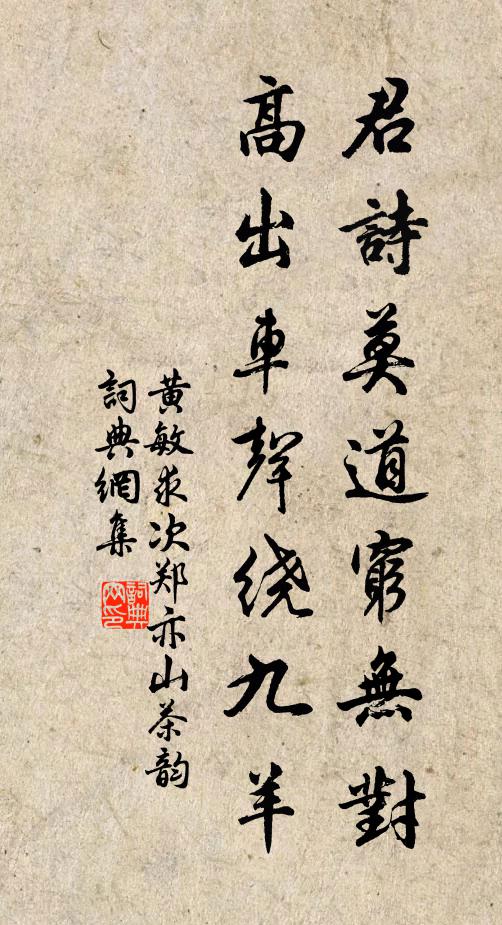 君詩莫道窮無對
高出車聲绕九羊
黄敏求次郑亦山茶韵
詞典網集
詞典网印